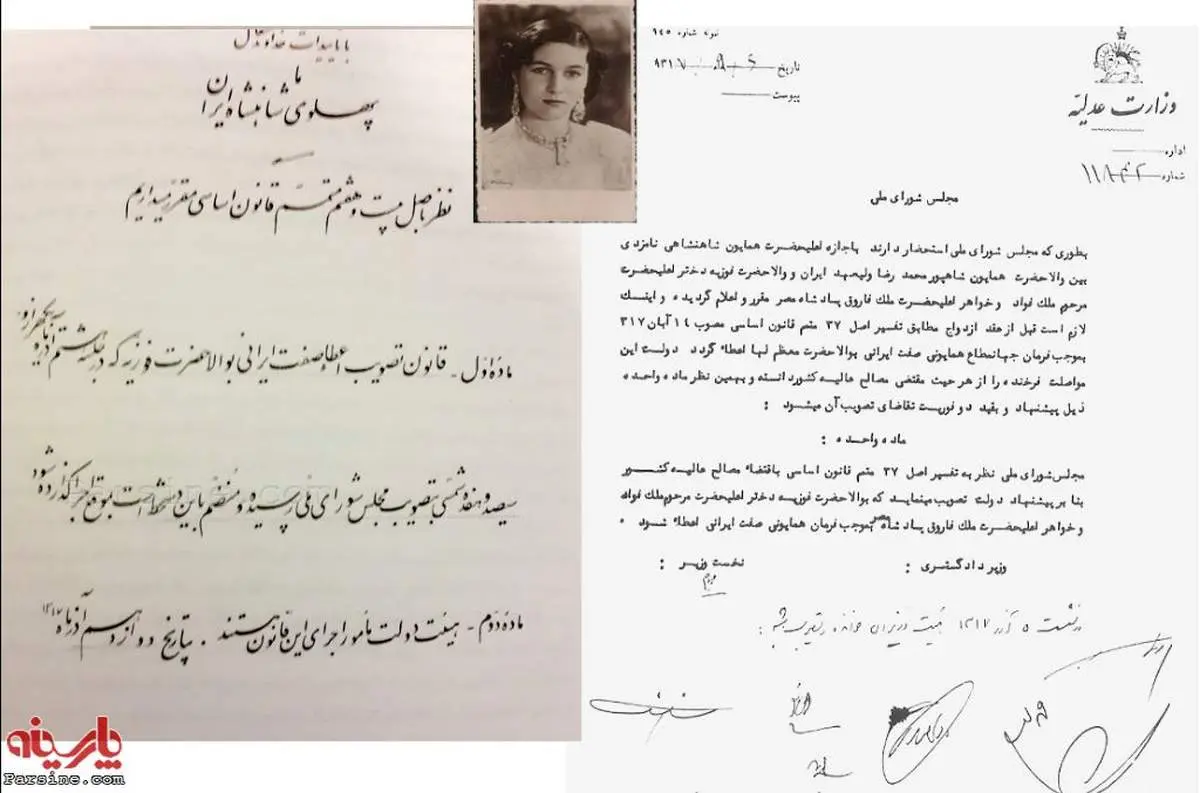 با تأییدات خداوند متعال
ما
پهلوی شاهنشاه ایران
نظر باصل بیست و هفتم متمم قانون اساسی مقرر میداریم
ماده اول - قانون تصویب اعطاء صفت ایرانی بوالاحضرت فوزیه که در جلسه هشتم آذرماه یکهزار و
سیصد و هفده شمسی بتصویب مجلس شورای ملی رسیده و منضم باین دستخط است بموقع اجرا گذارده شود
ماده دوم - هیئت دولت مامور اجرای این قانون هستند . بتاریخ دوازدهم آذرماه ۱۳۱۷
Parsine.com
پارسینه
وزارت عدلیه
اداره
شماره
نمونه شماره ۹۴۵
تاریخ
پیوست
مجلس شورای ملی
بطوری که مجلس شورای ملی استحضار دارند باجازه اعلیحضرت همایون شاهنشاهی نامزدی
بین والاحضرت همایون شاهپور محمد رضا ولیعهد ایران و والاحضرت فوزیه دختر اعلیحضرت
مرحوم ملک فواد و خواهر اعلیحضرت ملک فاروق پادشاه مصر مقرر و اعلام گردیده و اینک
لازم است قبل از عقد ازدواج مطابق تفسیر اصل ۳۷ متمم قانون اساسی مصوب ۱۴ آبان ۳۱۷
بموجب فرمان جهانمطاع همایونی صفت ایرانی بوالاحضرت معظم لها اعطاء گردد دولت این
مواصلت فرخنده را از هر حیث مقتضی مصالح عالیه کشور دانسته و بهمین نظر ماده واحده
ذیل پیشنهاد و بقید دو فوریت تقاضای تصویب آن میشود :
ماده واحده :
مجلس شورای ملی نظر به تفسیر اصل ۳۷ متمم قانون اساسی باقتضاء مصالح عالیه کشور
بنا بر پیشنهاد دولت تصویب مینماید که بوالاحضرت فوزیه دختر اعلیحضرت مرحوم ملک فواد
و خواهر اعلیحضرت ملک فاروق پادشاه مصر بموجب فرمان همایونی صفت ایرانی اعطاء شود .
وزیر دادگستری :
نخست وزیر :
در نشست ۵ آذر ۱۳۱۷ هیئت وزیران خوانده و تصویب شد :